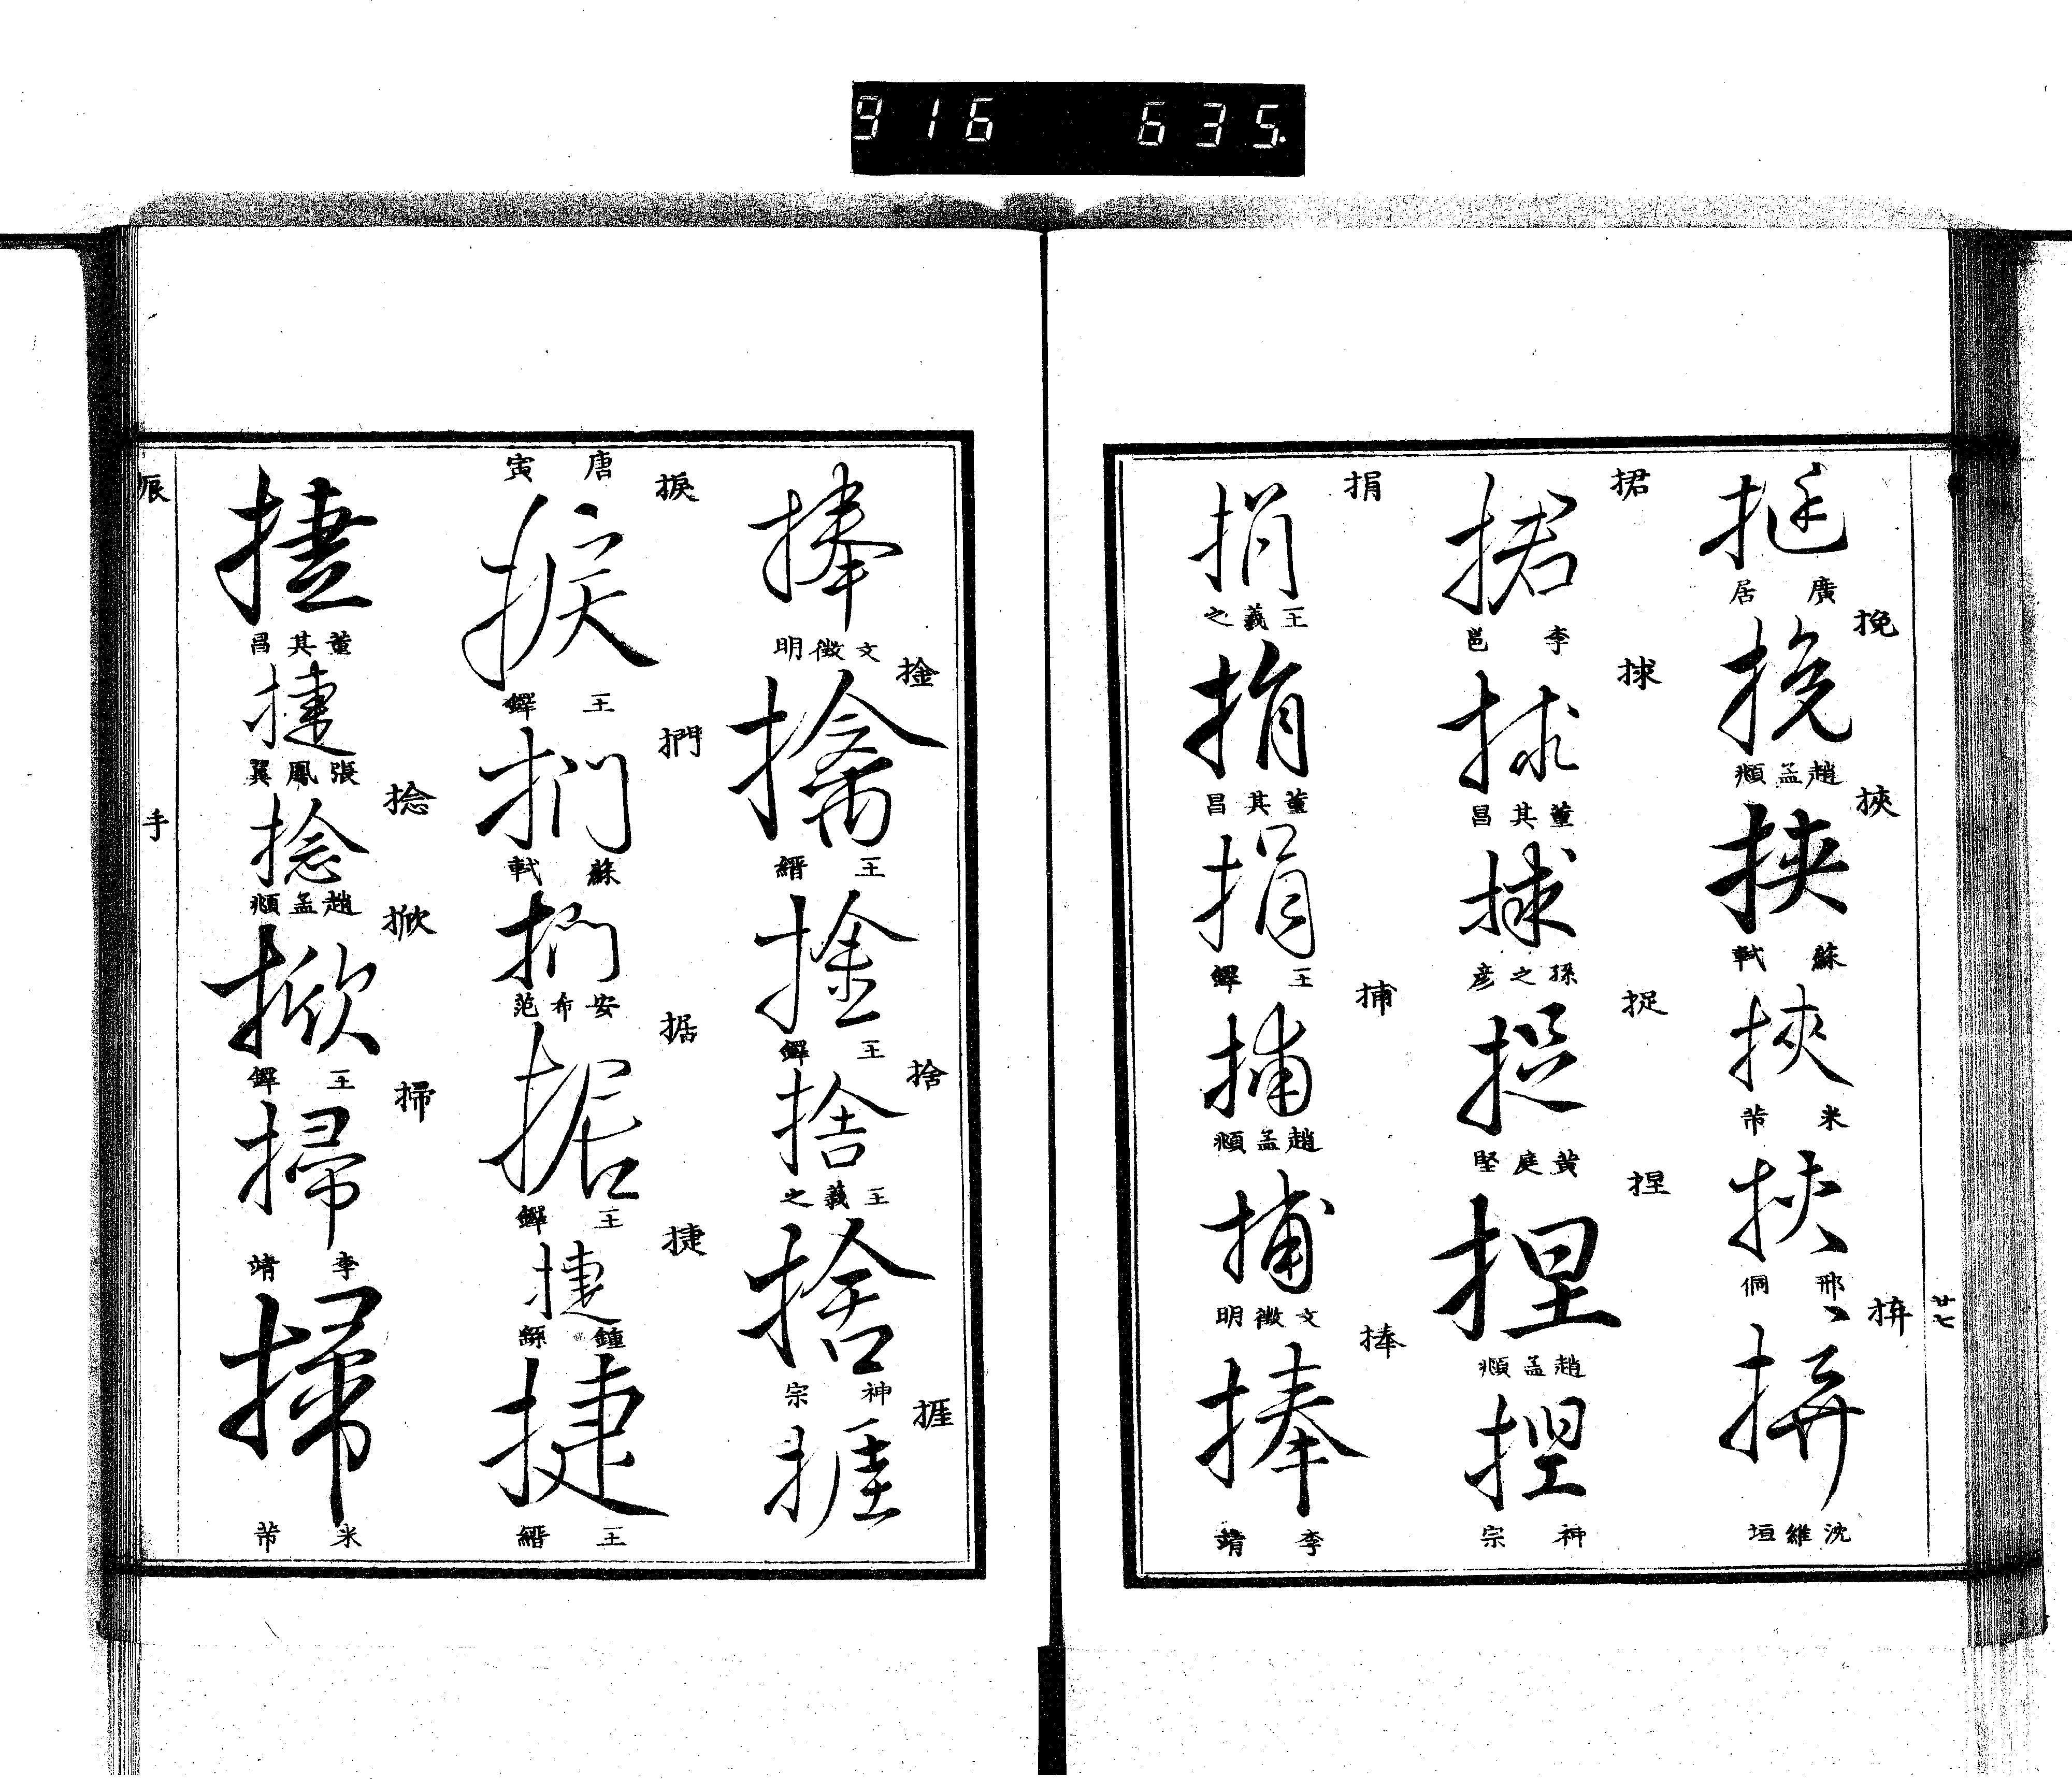 916 635.
廿七
挺
廣居
挽
挽
趙孟頫
挾
挾
蘇軾
挾
米芾
挾
邢侗
拼
拼
沈維垣
捃
捃
李邕
捄
捄
董其昌
捄
孫之彦
捉
捉
黃庭堅
捏
捏
趙孟頫
捏
神宗
捐
捐
王羲之
捐
董其昌
捐
王鐸
捕
捕
趙孟頫
捕
文徵明
捧
捧
李靖
捧
文徵明
捦
擒
王縉
捦
王鐸
捨
捨
王羲之
捨
神宗
捱
捱
唐寅
捩
捩
王鐸
捫
捫
蘇軾
捫
安希范
据
据
王鐸
捷
捷
鍾繇
捷
王縉
捷
董其昌
捷
張鳳翼
捻
捻
趙孟頫
掀
掀
王鐸
掃
掃
李靖
掃
米芾
辰
手